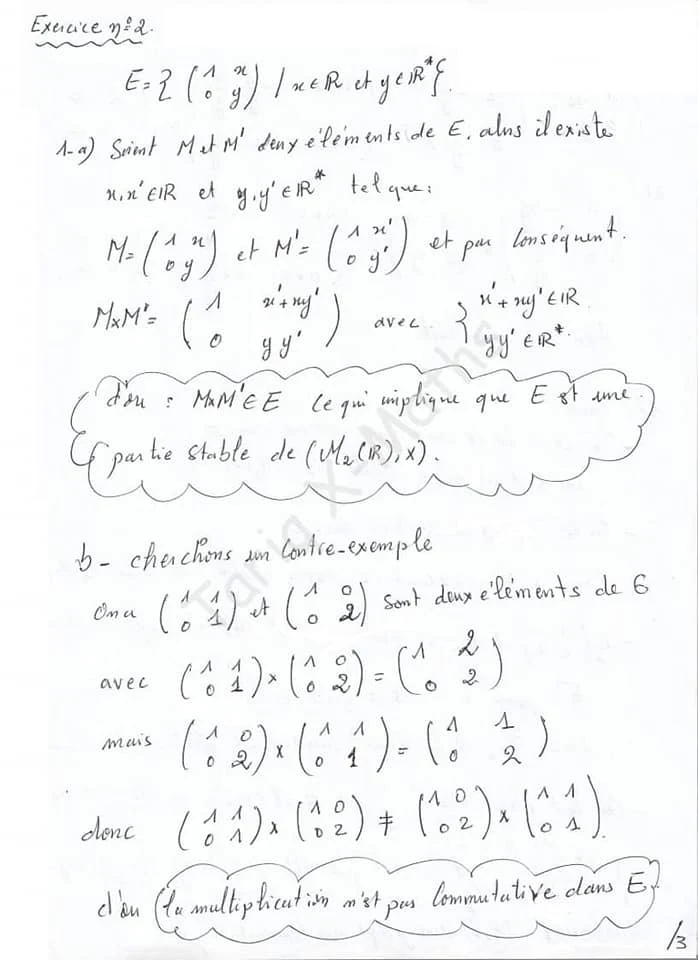 Exercice n°2.
E = { ( 1 x ; 0 y ) / x∈ℝ et y∈ℝ* }.
1-a) Soient M et M' deux éléments de E, alors il existe
x,x'∈ℝ et y,y'∈ℝ* tel que :
M = ( 1 x ; 0 y ) et M' = ( 1 x' ; 0 y' ) et par conséquent.
M×M' = ( 1 x'+xy' ; 0 yy' ) avec { x'+xy'∈ℝ ; yy'∈ℝ*.
d'où : M×M'∈E ce qui implique que E est une
partie stable de (M₂(ℝ),×).
b - cherchons un contre-exemple
On a ( 1 1 ; 0 1 ) et ( 1 0 ; 0 2 ) sont deux éléments de G
avec ( 1 1 ; 0 1 ) × ( 1 0 ; 0 2 ) = ( 1 2 ; 0 2 )
mais ( 1 0 ; 0 2 ) × ( 1 1 ; 0 1 ) = ( 1 1 ; 0 2 )
donc ( 1 1 ; 0 1 ) × ( 1 0 ; 0 2 ) ≠ ( 1 0 ; 0 2 ) × ( 1 1 ; 0 1 ).
d'où la multiplication n'est pas commutative dans E.
/3
Tariq X-Maths